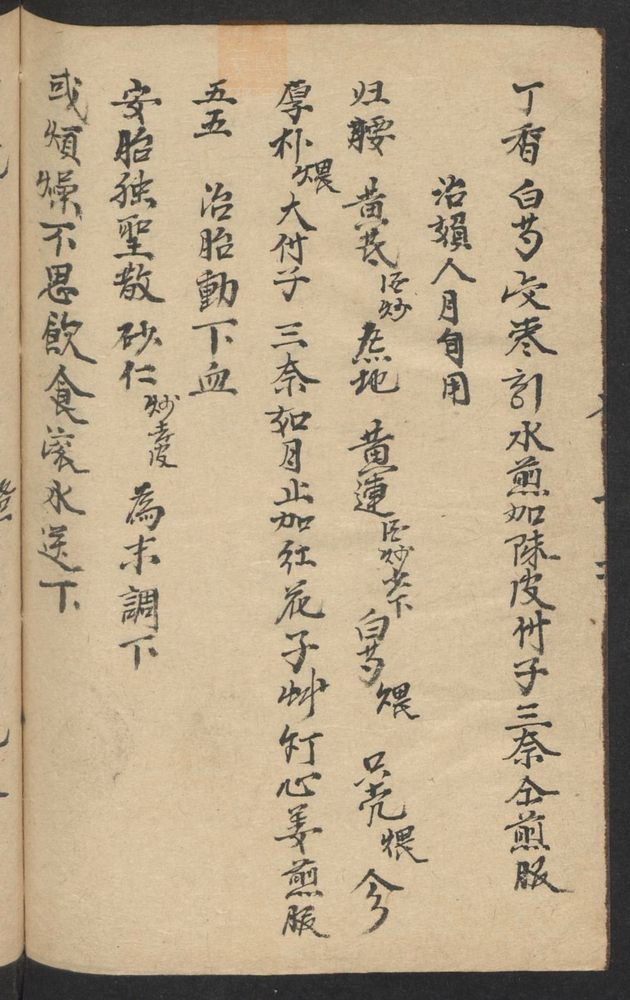 丁香 白芍 艾枣引水煎加陳皮付子三奈仝煎服
治嬾人月旬用
归腰 黄芪酒炒 熟地 黄連酒炒 白芍煨 只壳煨 今
厚朴煨 大付子 三奈如月止加红花子艸灯心姜煎服
五五 治胎動下血
安胎独聖散 砂仁炒去皮 為末調下
或煩燥不思飲食滚水送下